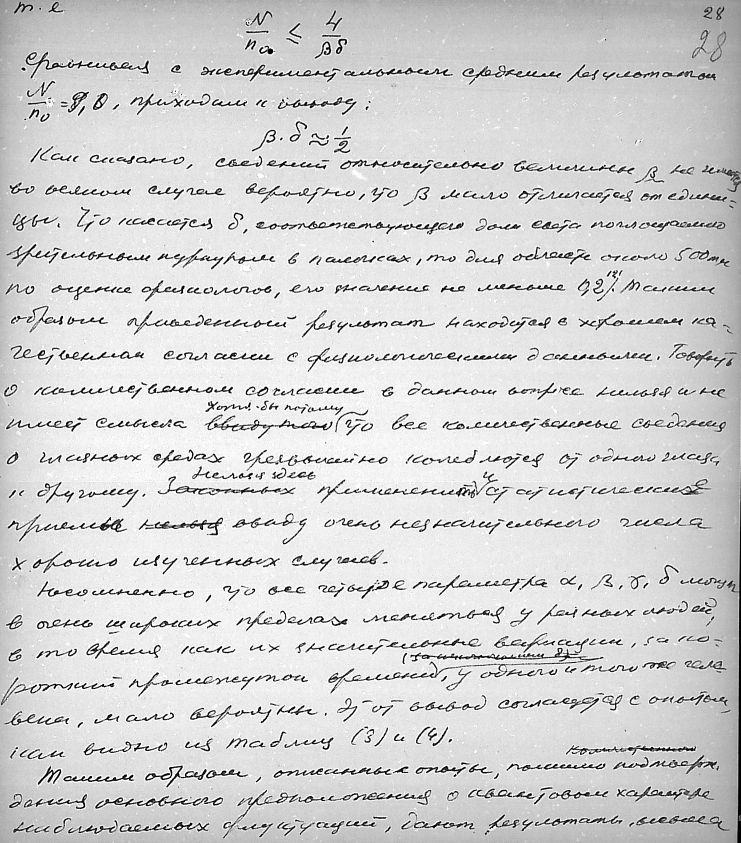 т. е
28
28
N/n₀ ≤ 4/βδ
Сравнивая с экспериментальным средним результатом
N/n₀ = 8,0, приходим к выводу:
β·δ ≈ 1/2
Как сказано, сведений относительно величины β не имеется
во всяком случае вероятно, что β мало отличается от едини-
цы. Что касается δ, соответствующего доли света поглощаемого
зрительным пурпуром в палочках, то для области около 500 mμ
по оценке физиологов, его значение не меньше 0,2. Таким
образом приведенный результат находится в хорошем ка-
чественном согласии с физиологическими данными. Говорить
о количественном согласии в данном вопросе нельзя и не
хотя-бы потому
имеет смысла ввиду того что все количественные сведения
о глазных средах чрезвычайно колеблются от одного глаза
Нельзя здесь
к другому. Законных применить и статистические
приемы нельзя ввиду очень незначительного числа
хорошо изученных случаев.
Несомненно, что все четыре параметра α, β, γ, δ могут
в очень широких пределах меняться у разных людей,
в то время как их значительные вариации, за ко-
(за исключением δ)
роткий промежуток времени, у одного и того же чело
века, мало вероятны. Этот вывод согласуется с опытом,
как видно из таблиц (3) и (4).
количественного
Таким образом, описанные опыты, помимо подтверж-
дения основного предположения о квантовом характере
наблюдаемых флуктуаций, дают результаты, весьма